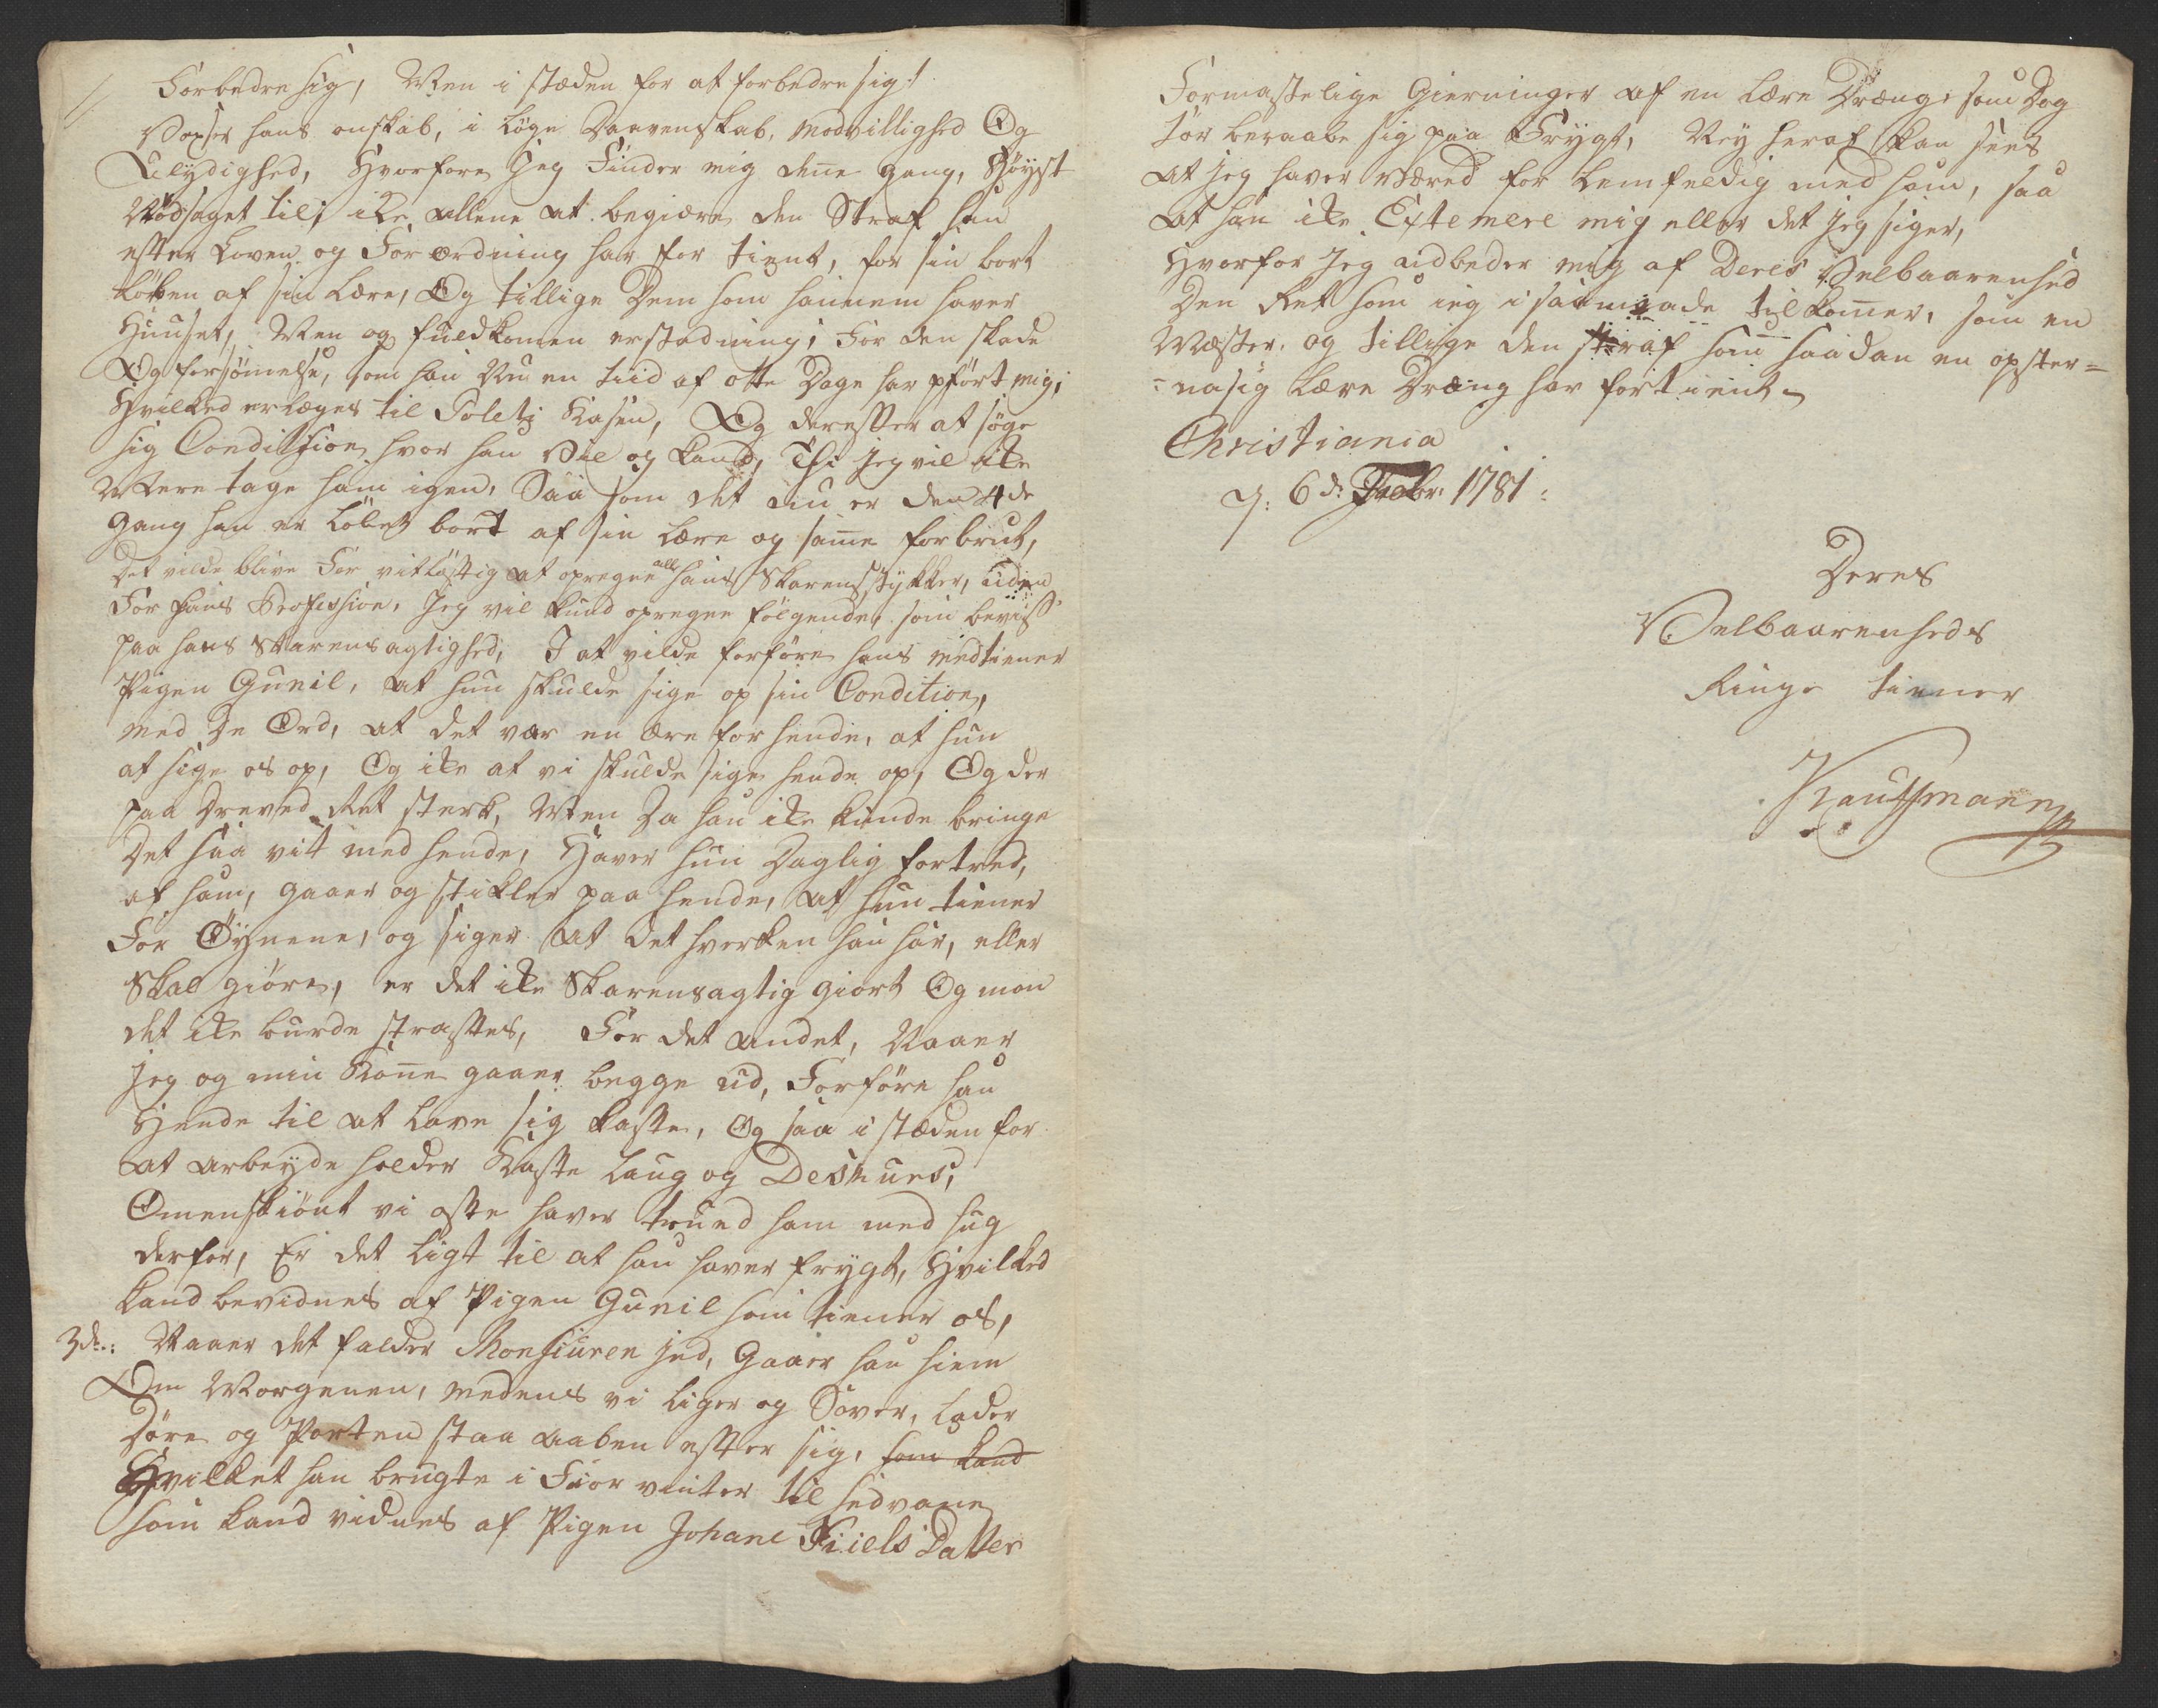 Forbedre sig, Men i stæden for at forbedre sig!
Voxser hans onskab, i Løgn Daavenskab, Modvillighed Og
Ulydighed, Hvorfore Jeg Finder mig denne gang, Høyst
Nødsaget til, ike allene at begiære den Straf han
efter Loven og Forordning har for tient, for sin bort
løben af sin Lære, Og tillige Dem som hannem haver
Huuset, Men og fuldkomen erstadning, For den skade
Og forsømelse, som han Nu en tiid af otte Dage har pført mig,
Hvilked erlæges til Poleti Kasen, Og derefter at søge
sig Condission hvor han Vil og Kand, Thi Jeg vil ike
Mere tage ham igen, Saa som det nu er den 4de
Gang han er Løbet bort af sin Lære og samme forbrut,
Det vilde blive For vitløftig at opregne all hans Skarensstykker, uden
For hans Profession, Jeg vil kund opregne følgende, som beviss
paa hans Skarensagtighed, I at vilde forføre hans medtiener
Pigen Gunil, at hun skulde sige op sin Condition,
med De Ord, at det var en ære for hende, at hun
at sige os op, Og ike at vi skulde sige hende op, Og der
paa Dreved Ret sterk, Men Da han ike kunde bringe
Det saa vit med hende, Haver hun Daglig fortred,
af ham, gaaer og stikler paa hende, at hun tiener
For Øynene, og siger at det hverken han har, eller
Skal giøre, er det ike Skarensagtig giort Og mon
det ike burde straffes, For det andet, Naaer
Jeg og min Kone gaaer begge ud, Forføre han
Hende til at lave sig Kaffe, Og saa i stæden for
at arbeyde holder Kaffe Laug og Deskurs,
Omenskiønt vi ofte haver trued ham med hug
derfor, Er det ligt til at han haver frygt, Hvilked
kand bevidnes af Pigen Gunil som tiener os,
3de: Naaer det falder Monsiuren ind, Gaaer han hiem
Om Morgenen, medens vi liger og Sover, lader
Døre og Porten staa aaben efter sig, som kand
Hvilket han brugte i Fior vinter til sedvane
som kand vidnes af Pigen Johane Niels Datter
Formastelige Gierninger af en Lære Dræng, som Dog
tør beraabe sig paa Frygt, Ney heraf kan sees
at Jeg haver Været for lemfeldig med ham, saa
at han ike Estemere mig eller det Jeg siger,
Hvorfor Jeg udbeder mig af Deres Velbaarenhed
Den Ret som ieg i saamaade tilkomer, som en
Mæster, og tillige den straf som saadan en opster=
=nasig Lære Dræng har fortient
Christiania
d: 6d: Febr: 1781:
Deres
Velbaarenheds
Ringe tiener
Kauffmann